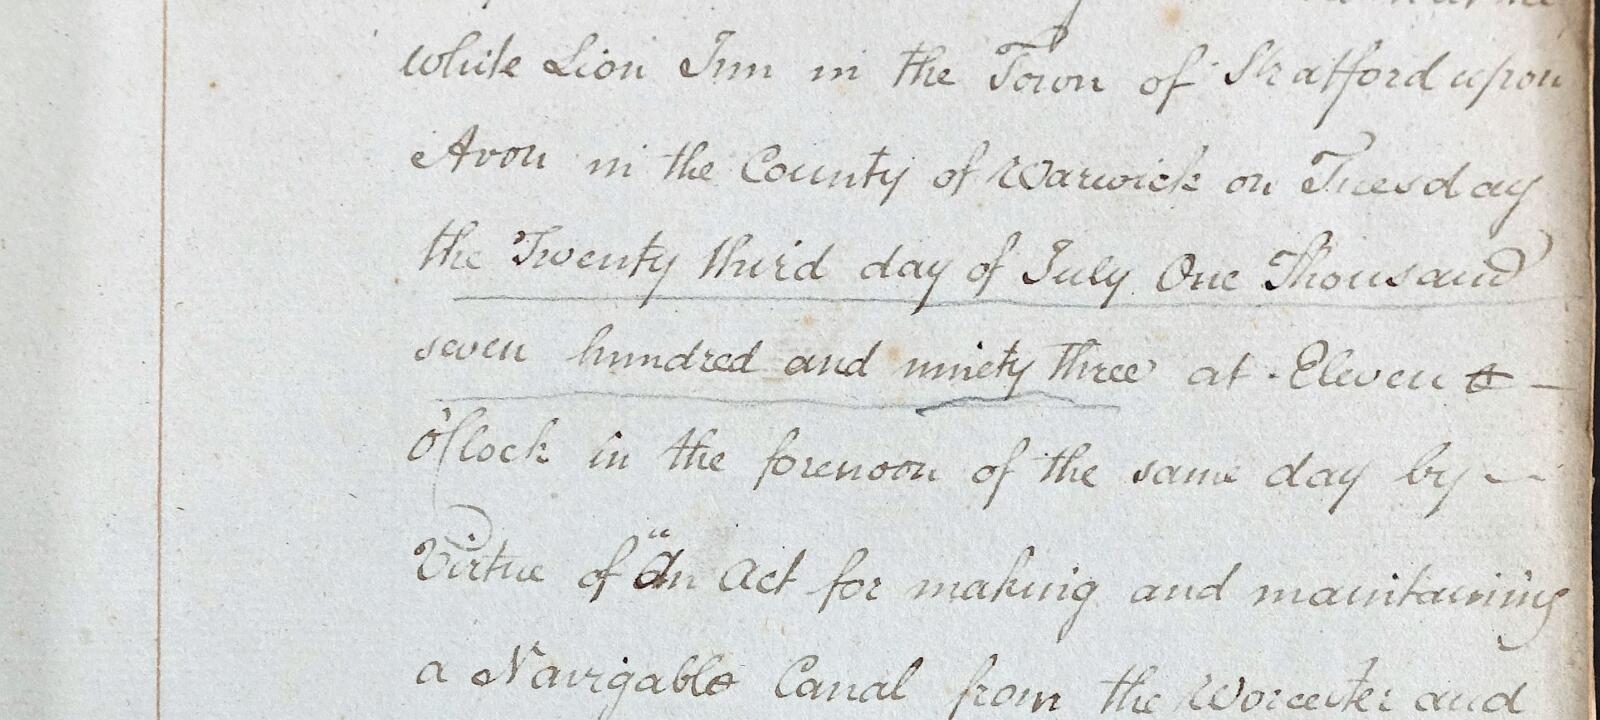 while Lion Inn in the Town of Stratford upon
Avon in the County of Warwick on Tuesday
the Twenty third day of July One Thousand
seven hundred and ninety three at Eleven
o'Clock in the forenoon of the same day by —
Virtue of "An Act for making and maintaining
a Navigable Canal from the Worcester and